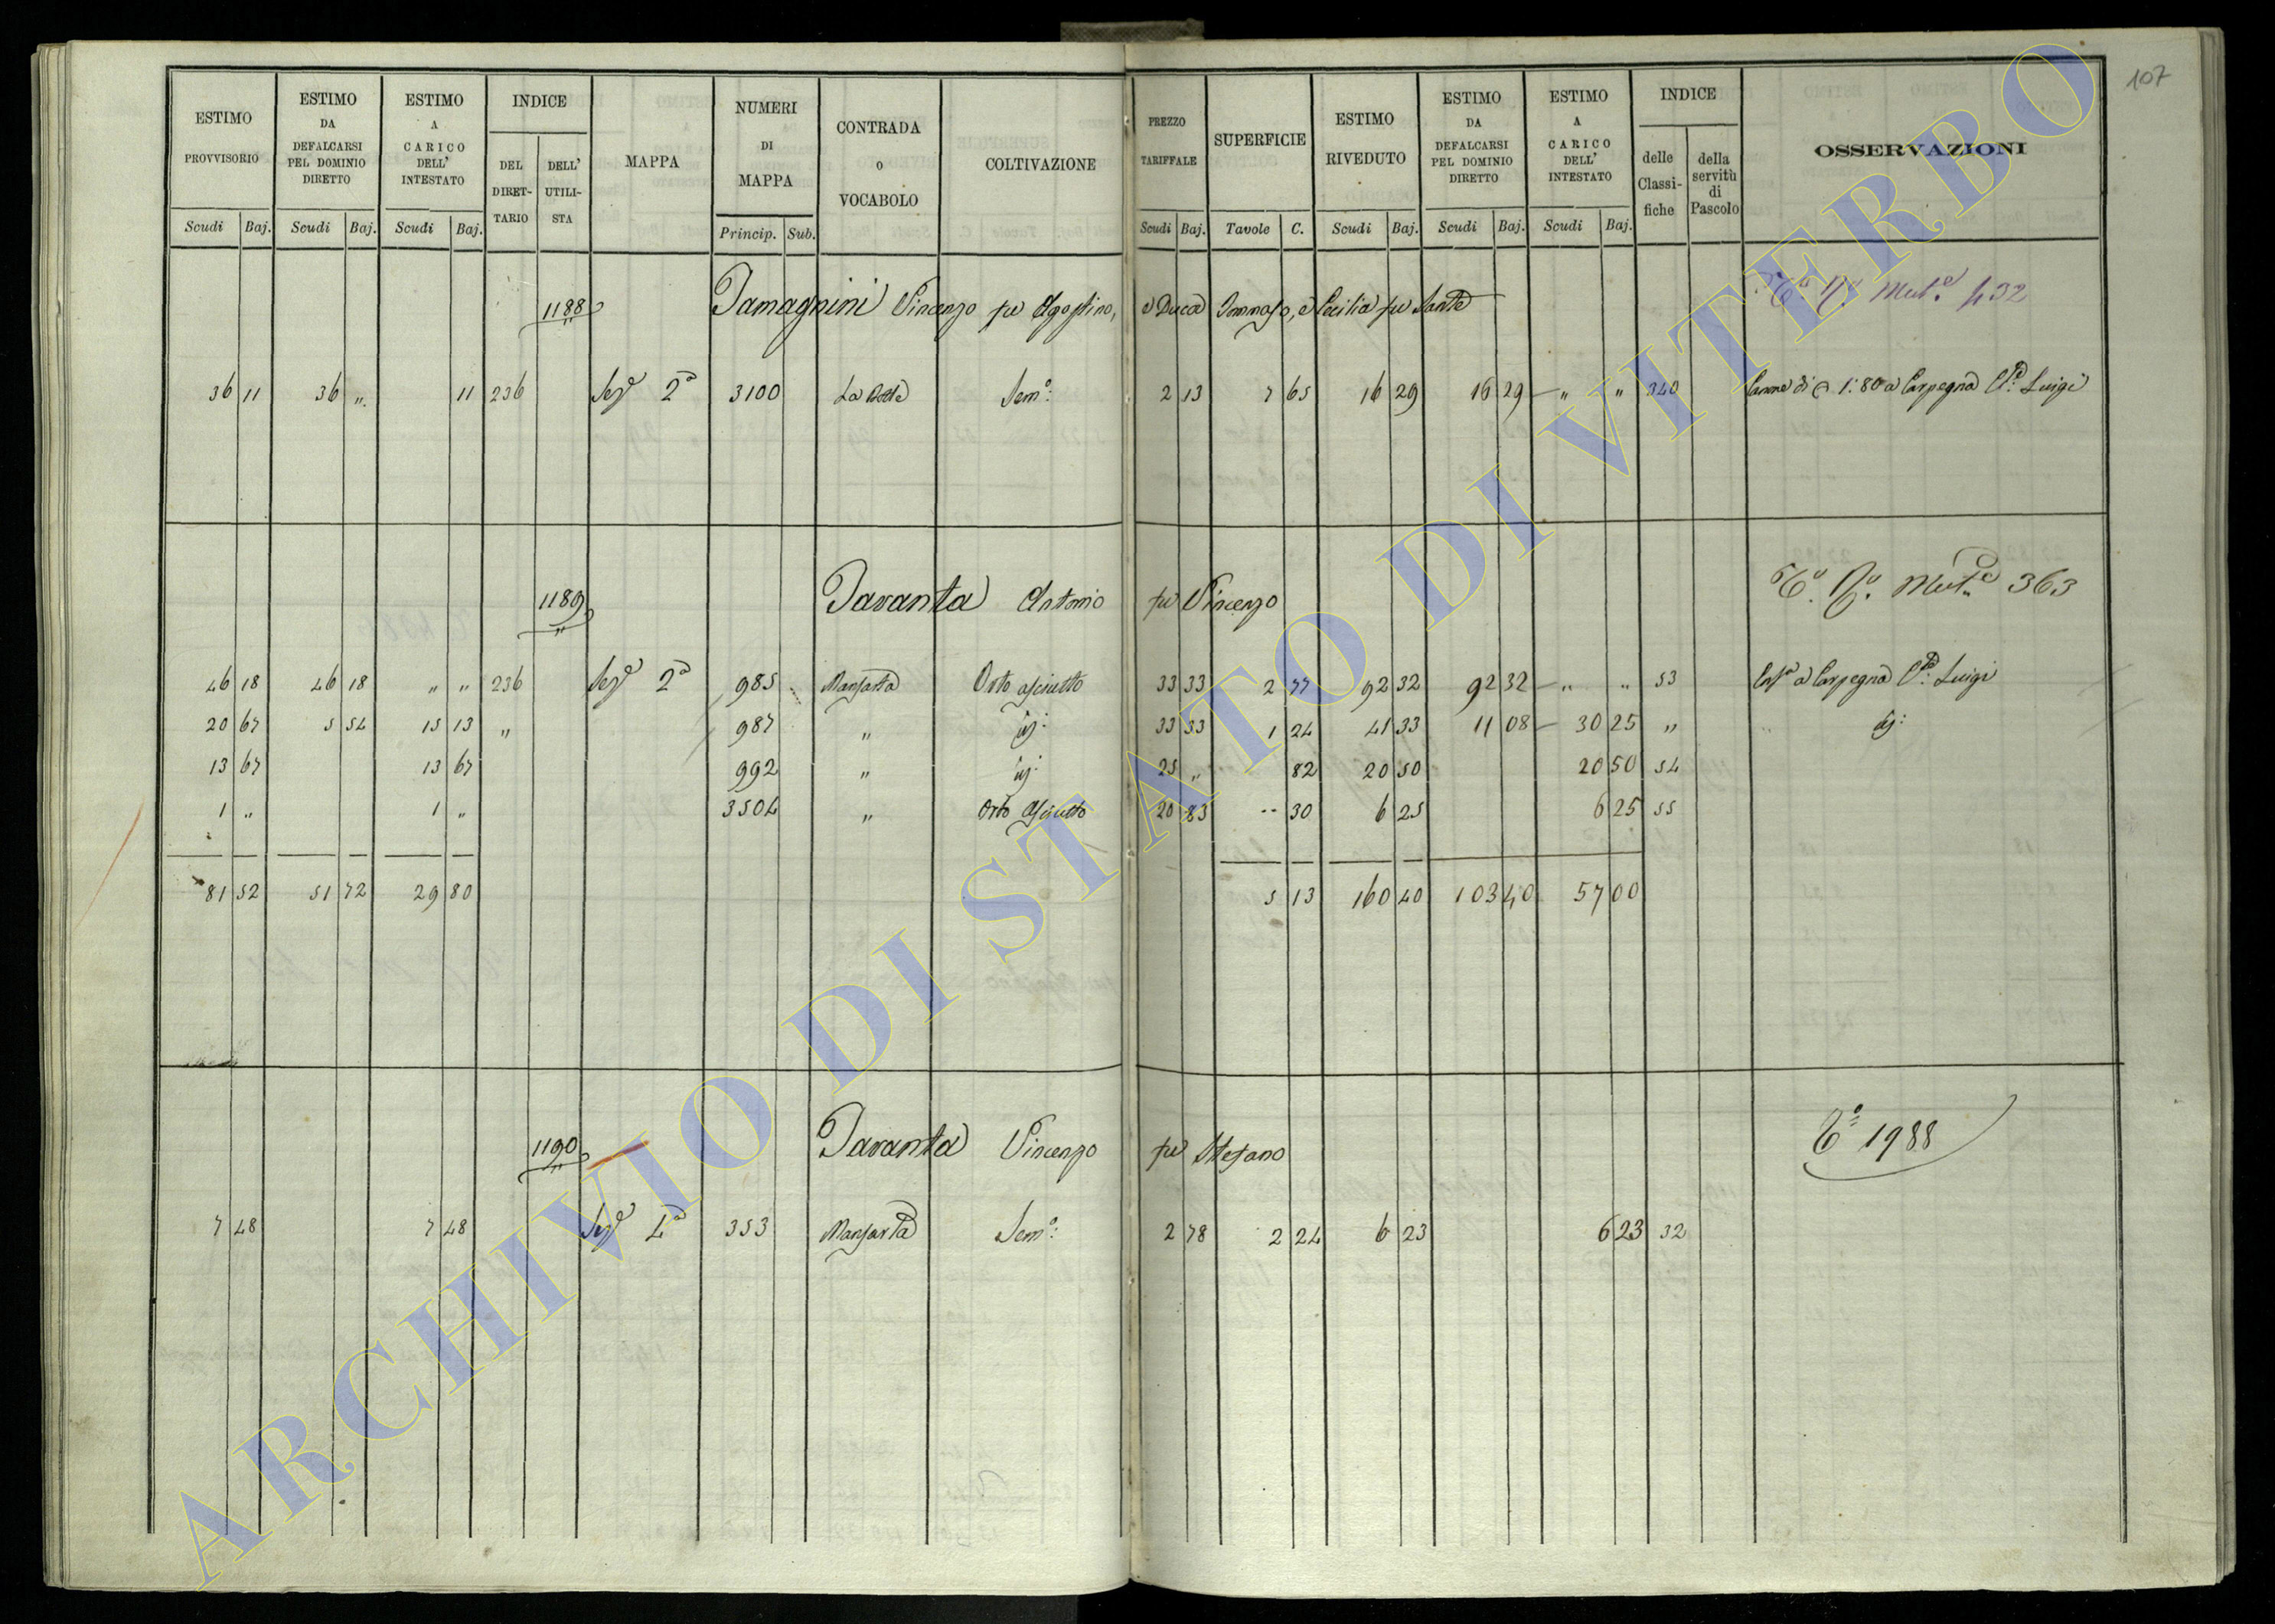 107
ESTIMO PROVVISORIO | ESTIMO DA DEFALCARSI PEL DOMINIO DIRETTO | ESTIMO A CARICO DELL' INTESTATO | INDICE | MAPPA | NUMERI DI MAPPA | CONTRADA O VOCABOLO | COLTIVAZIONE | PREZZO TARIFFALE | SUPERFICIE | ESTIMO RIVEDUTO | ESTIMO DA DEFALCARSI PEL DOMINIO DIRETTO | ESTIMO A CARICO DELL' INTESTATO | INDICE | OSSERVAZIONI
DEL DIRET-TARIO | DELL' UTILI-STA | delle Classi-fiche | della servitù di Pascolo
Scudi | Baj. | Scudi | Baj. | Scudi | Baj. | Princip. | Sub. | Scudi | Baj. | Tavole | C. | Scudi | Baj. | Scudi | Baj. | Scudi | Baj.
1188 Tamagnini Vincenzo fu Agostino, e Duca Tommaso, e Cecilia fu Sante Mut.e 432
36 11 36 " 11 236 Sez.e 2a 3100 Sem.o: 2 13 7 65 16 29 16 29 " " 340 Canone di 1:80 a Carpegna Luigi
1189 Tavanta Antonio fu Vincenzo Mut.e 363
46 18 46 18 " " 236 Sez.e 2a 985 Manfarta Orto asciutto 33 33 2 77 92 32 92 32 " " 53 a Carpegna Luigi
20 67 5 54 15 13 " 987 " id: 33 33 1 24 41 33 11 08 30 25 " id:
13 67 13 67 992 " id: 25 " 82 20 50 20 50 54
1 " 1 " 3504 " Orto asciutto 20 83 -- 30 6 25 6 25 55
81 52 51 72 29 80 5 13 160 40 103 40 57 00
1190 Tavanta Vincenzo fu Stefano 1988
7 48 7 48 Sez.e 4a 353 Manfarta Sem.o: 2 78 2 24 6 23 6 23 32
ARCHIVIO DI STATO DI VITERBO